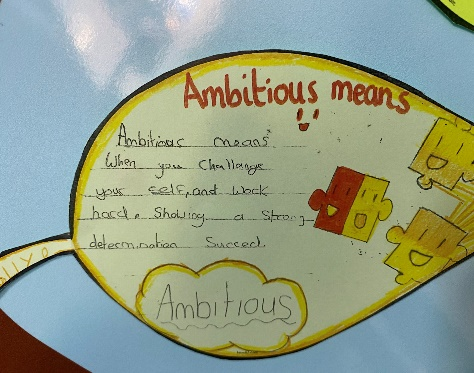 Ambitious means
Ambitious means
When you Challange
your self, and Work
hard. Showing a Strong
determination Succed.
Ambitious